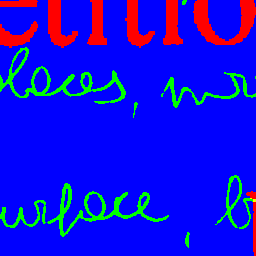 etitio
places, mor
urface, b